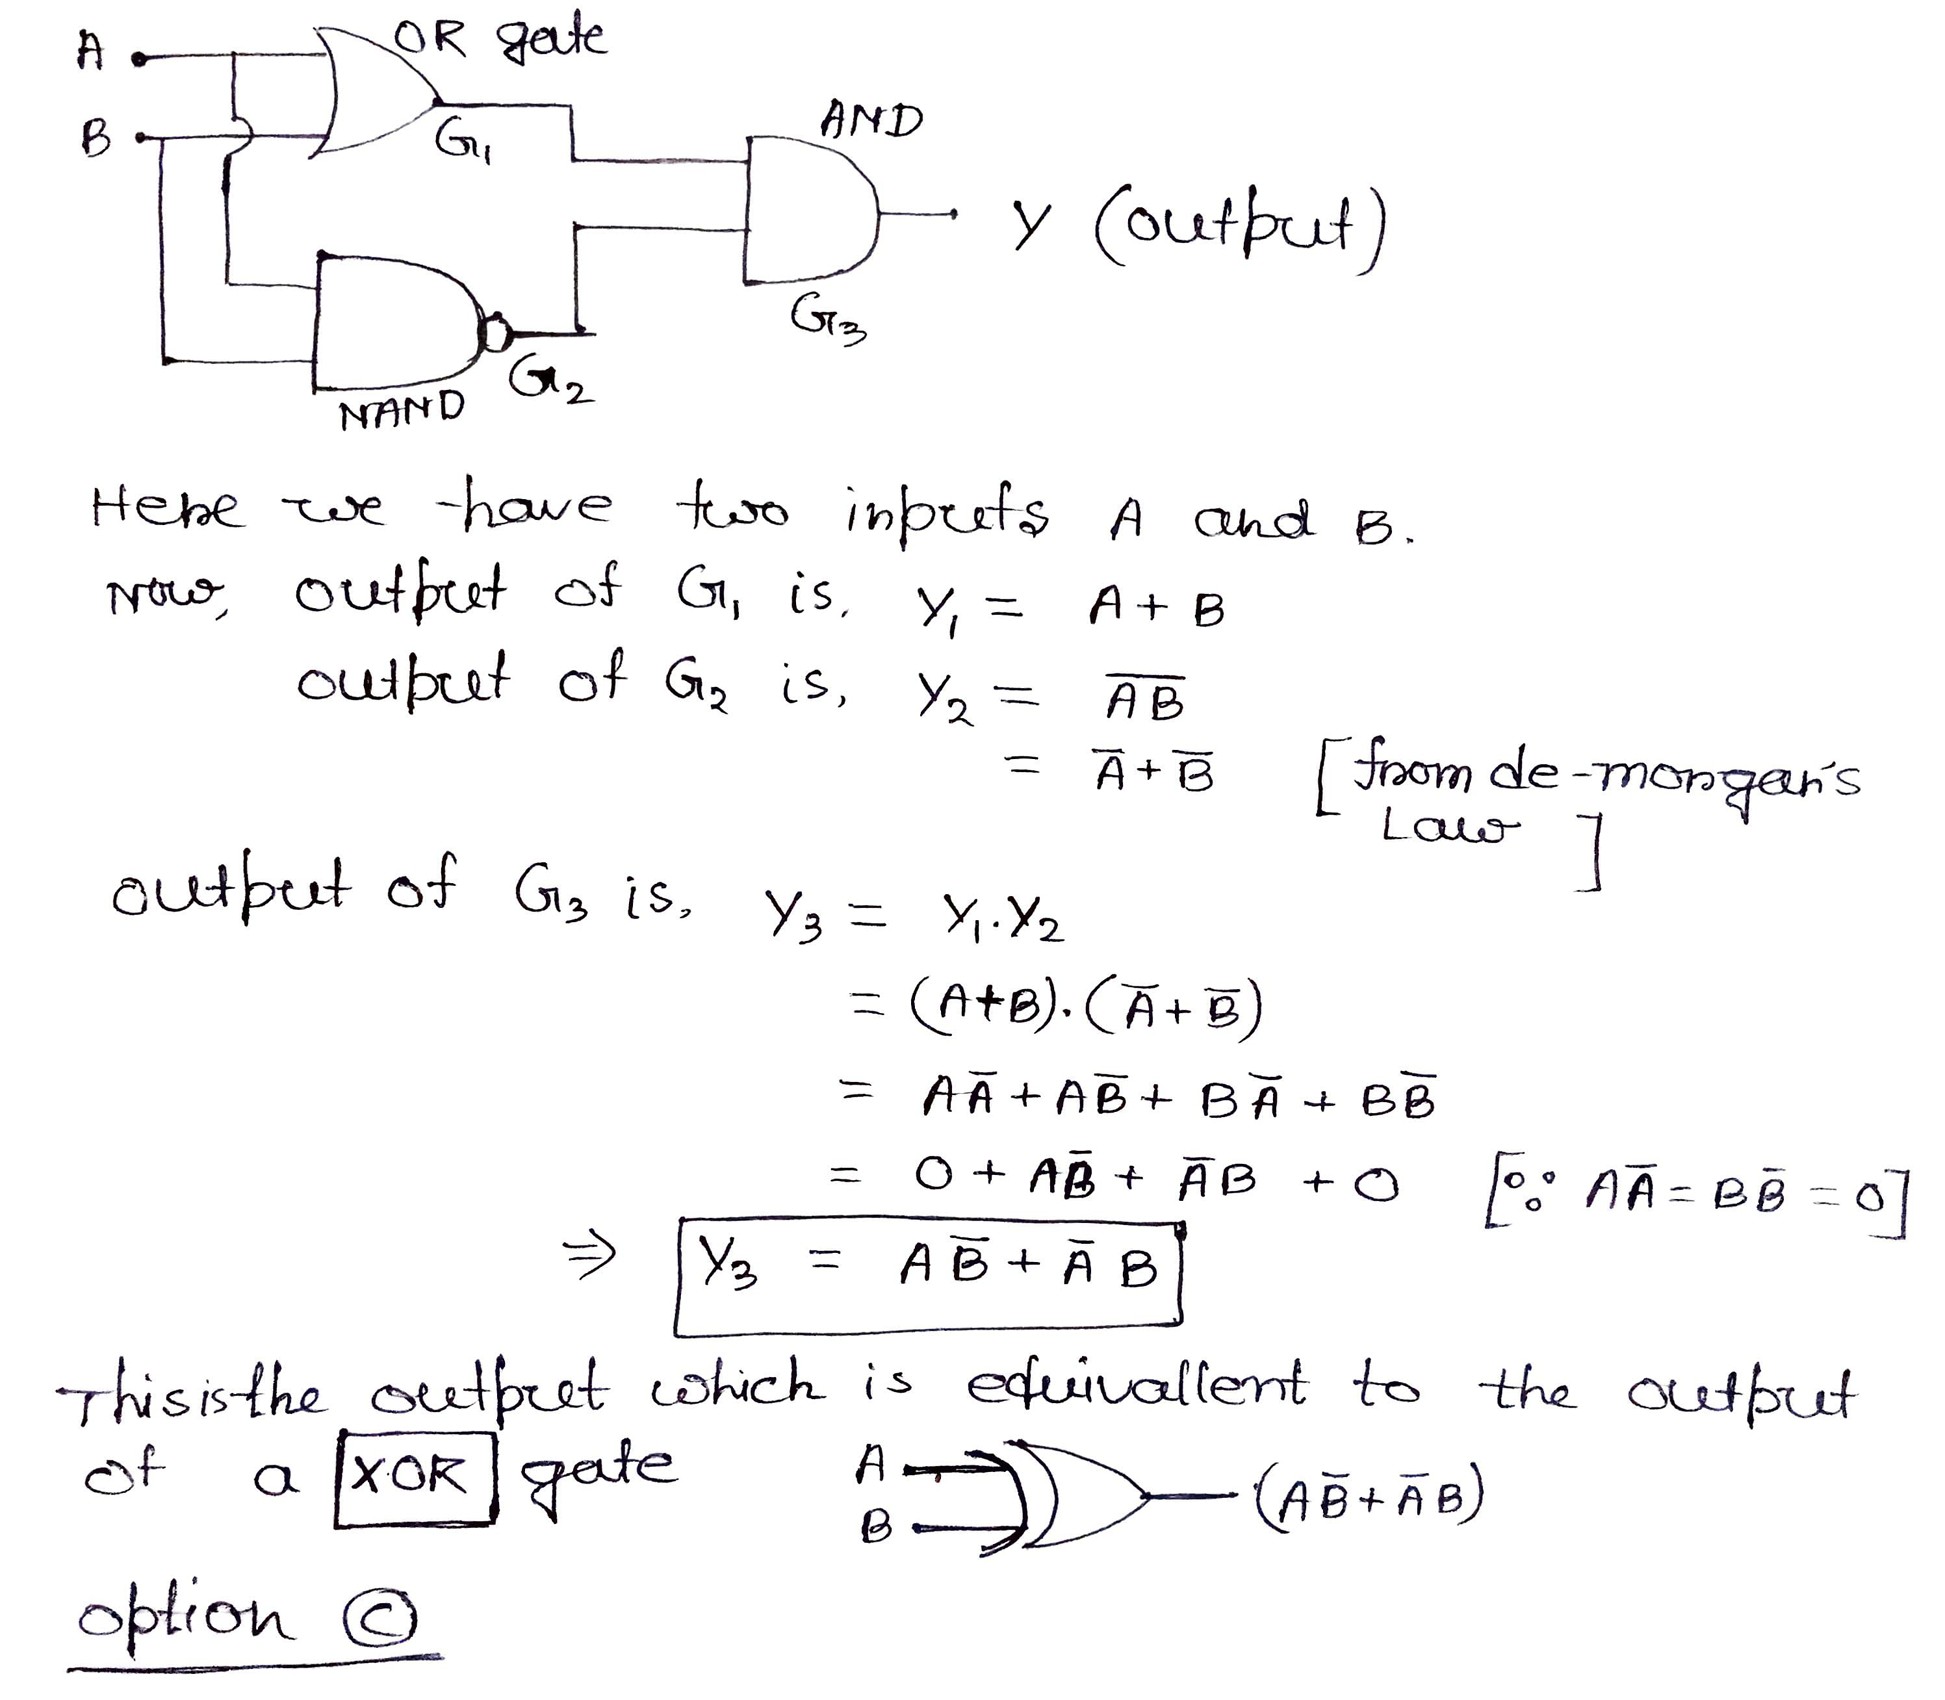 A
OR gate
B
G1
AND
Y (output)
G3
G2
NAND
Here we have two inputs A and B.
Now, output of G1 is, Y1 = A + B
output of G2 is, Y2 = A̅B̅
= A̅ + B̅ [from de-morgan's
Law ]
output of G3 is, Y3 = Y1.Y2
= (A+B).(A̅+B̅)
= AA̅ + AB̅ + BA̅ + BB̅
= 0 + AB̅ + A̅B + 0 [∵ AA̅ = BB̅ = 0]
⇒ Y3 = AB̅ + A̅ B
This is the output which is equivallent to the output
of a XOR gate
A
B
(AB̅ + A̅B)
option ©